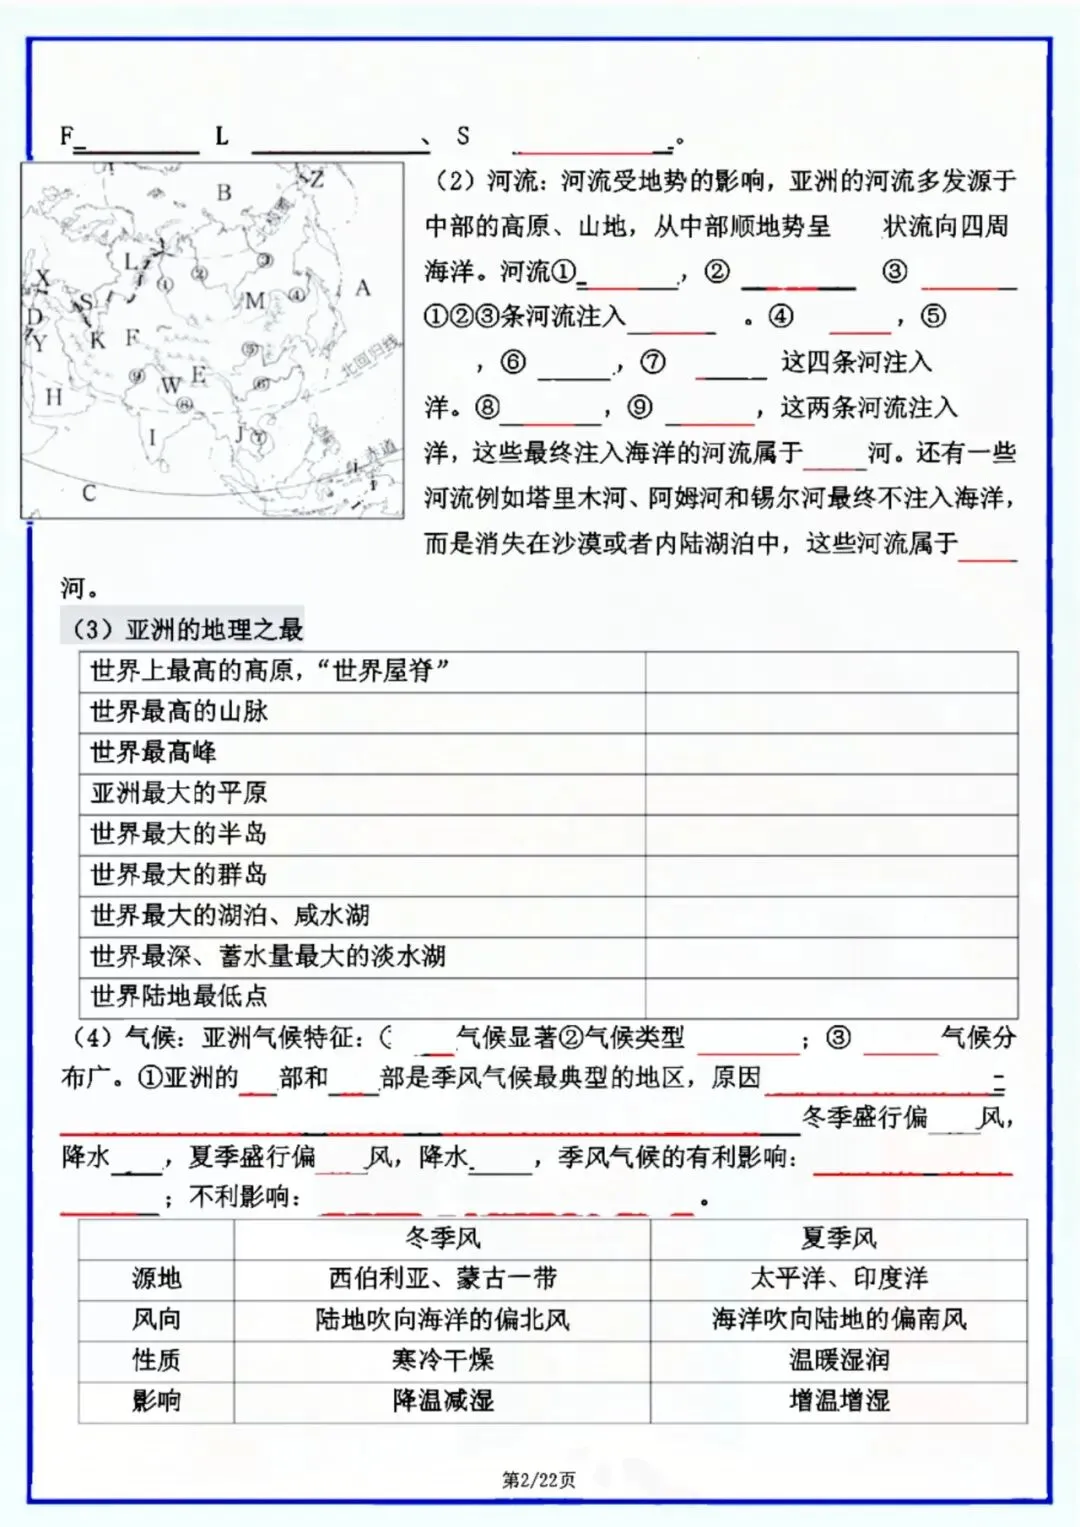 F______ L ______、S ______。
B
Z
L
①
②
③
④
M
A
X
S
D
Y
K
F
⑤
北回归线
⑨
W
E
⑥
⑧
H
I
J
赤道
C
（2）河流：河流受地势的影响，亚洲的河流多发源于
中部的高原、山地，从中部顺地势呈 状流向四周
海洋。河流①______，②______ ③______
①②③条河流注入______。④______，⑤
，⑥______，⑦______ 这四条河注入
洋。⑧______，⑨______，这两条河流注入
洋，这些最终注入海洋的河流属于____河。还有一些
河流例如塔里木河、阿姆河和锡尔河最终不注入海洋，
而是消失在沙漠或者内陆湖泊中，这些河流属于____
河。
（3）亚洲的地理之最
世界上最高的高原，“世界屋脊”
世界最高的山脉
世界最高峰
亚洲最大的平原
世界最大的半岛
世界最大的群岛
世界最大的湖泊、咸水湖
世界最深、蓄水量最大的淡水湖
世界陆地最低点
（4）气候：亚洲气候特征：（ ____气候显著②气候类型 ______；③ ______气候分
布广。①亚洲的___部和___部是季风气候最典型的地区，原因______
______冬季盛行偏____风，
降水____，夏季盛行偏____风，降水____，季风气候的有利影响：______
______；不利影响：______。
冬季风 夏季风
源地 西伯利亚、蒙古一带 太平洋、印度洋
风向 陆地吹向海洋的偏北风 海洋吹向陆地的偏南风
性质 寒冷干燥 温暖湿润
影响 降温减湿 增温增湿
第2/22页